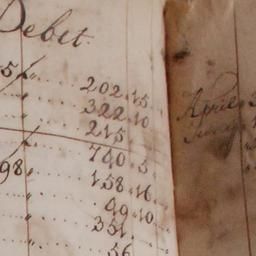 Debit.
5 " 202.15
" 322.10
" 215
" 740.5
98 " 158.16
" 49.10
" 351
" 56
April